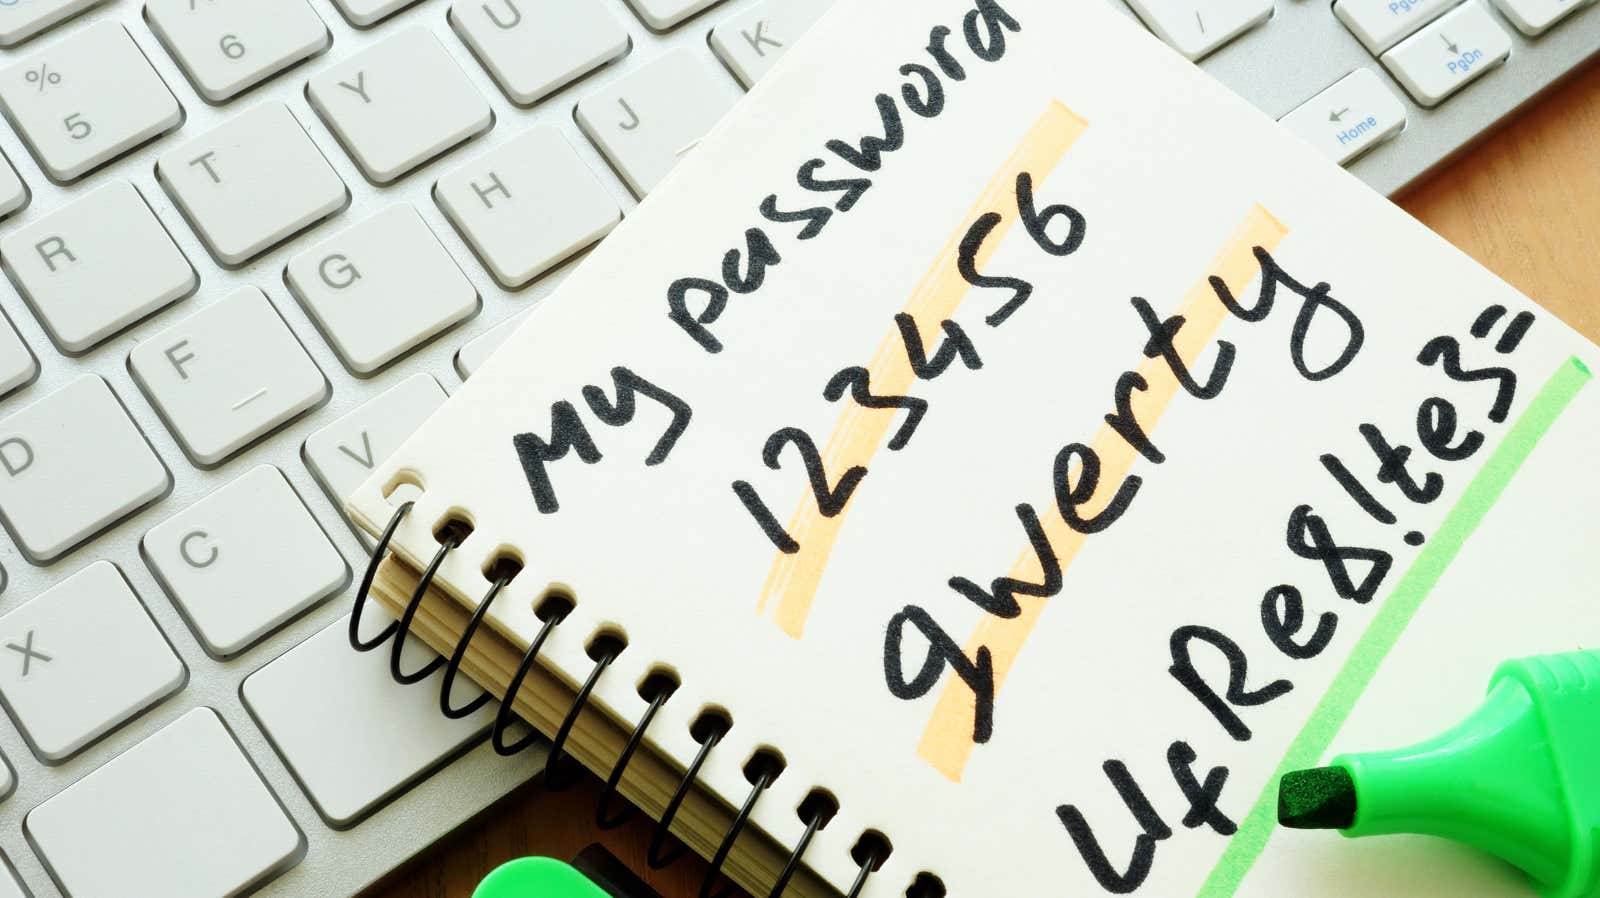 My password
123456
qwerty
UfRe8!te3=
%
5
6
Y
U
K
/
PgDn
Home
R
T
H
J
D
F
G
X
C
V